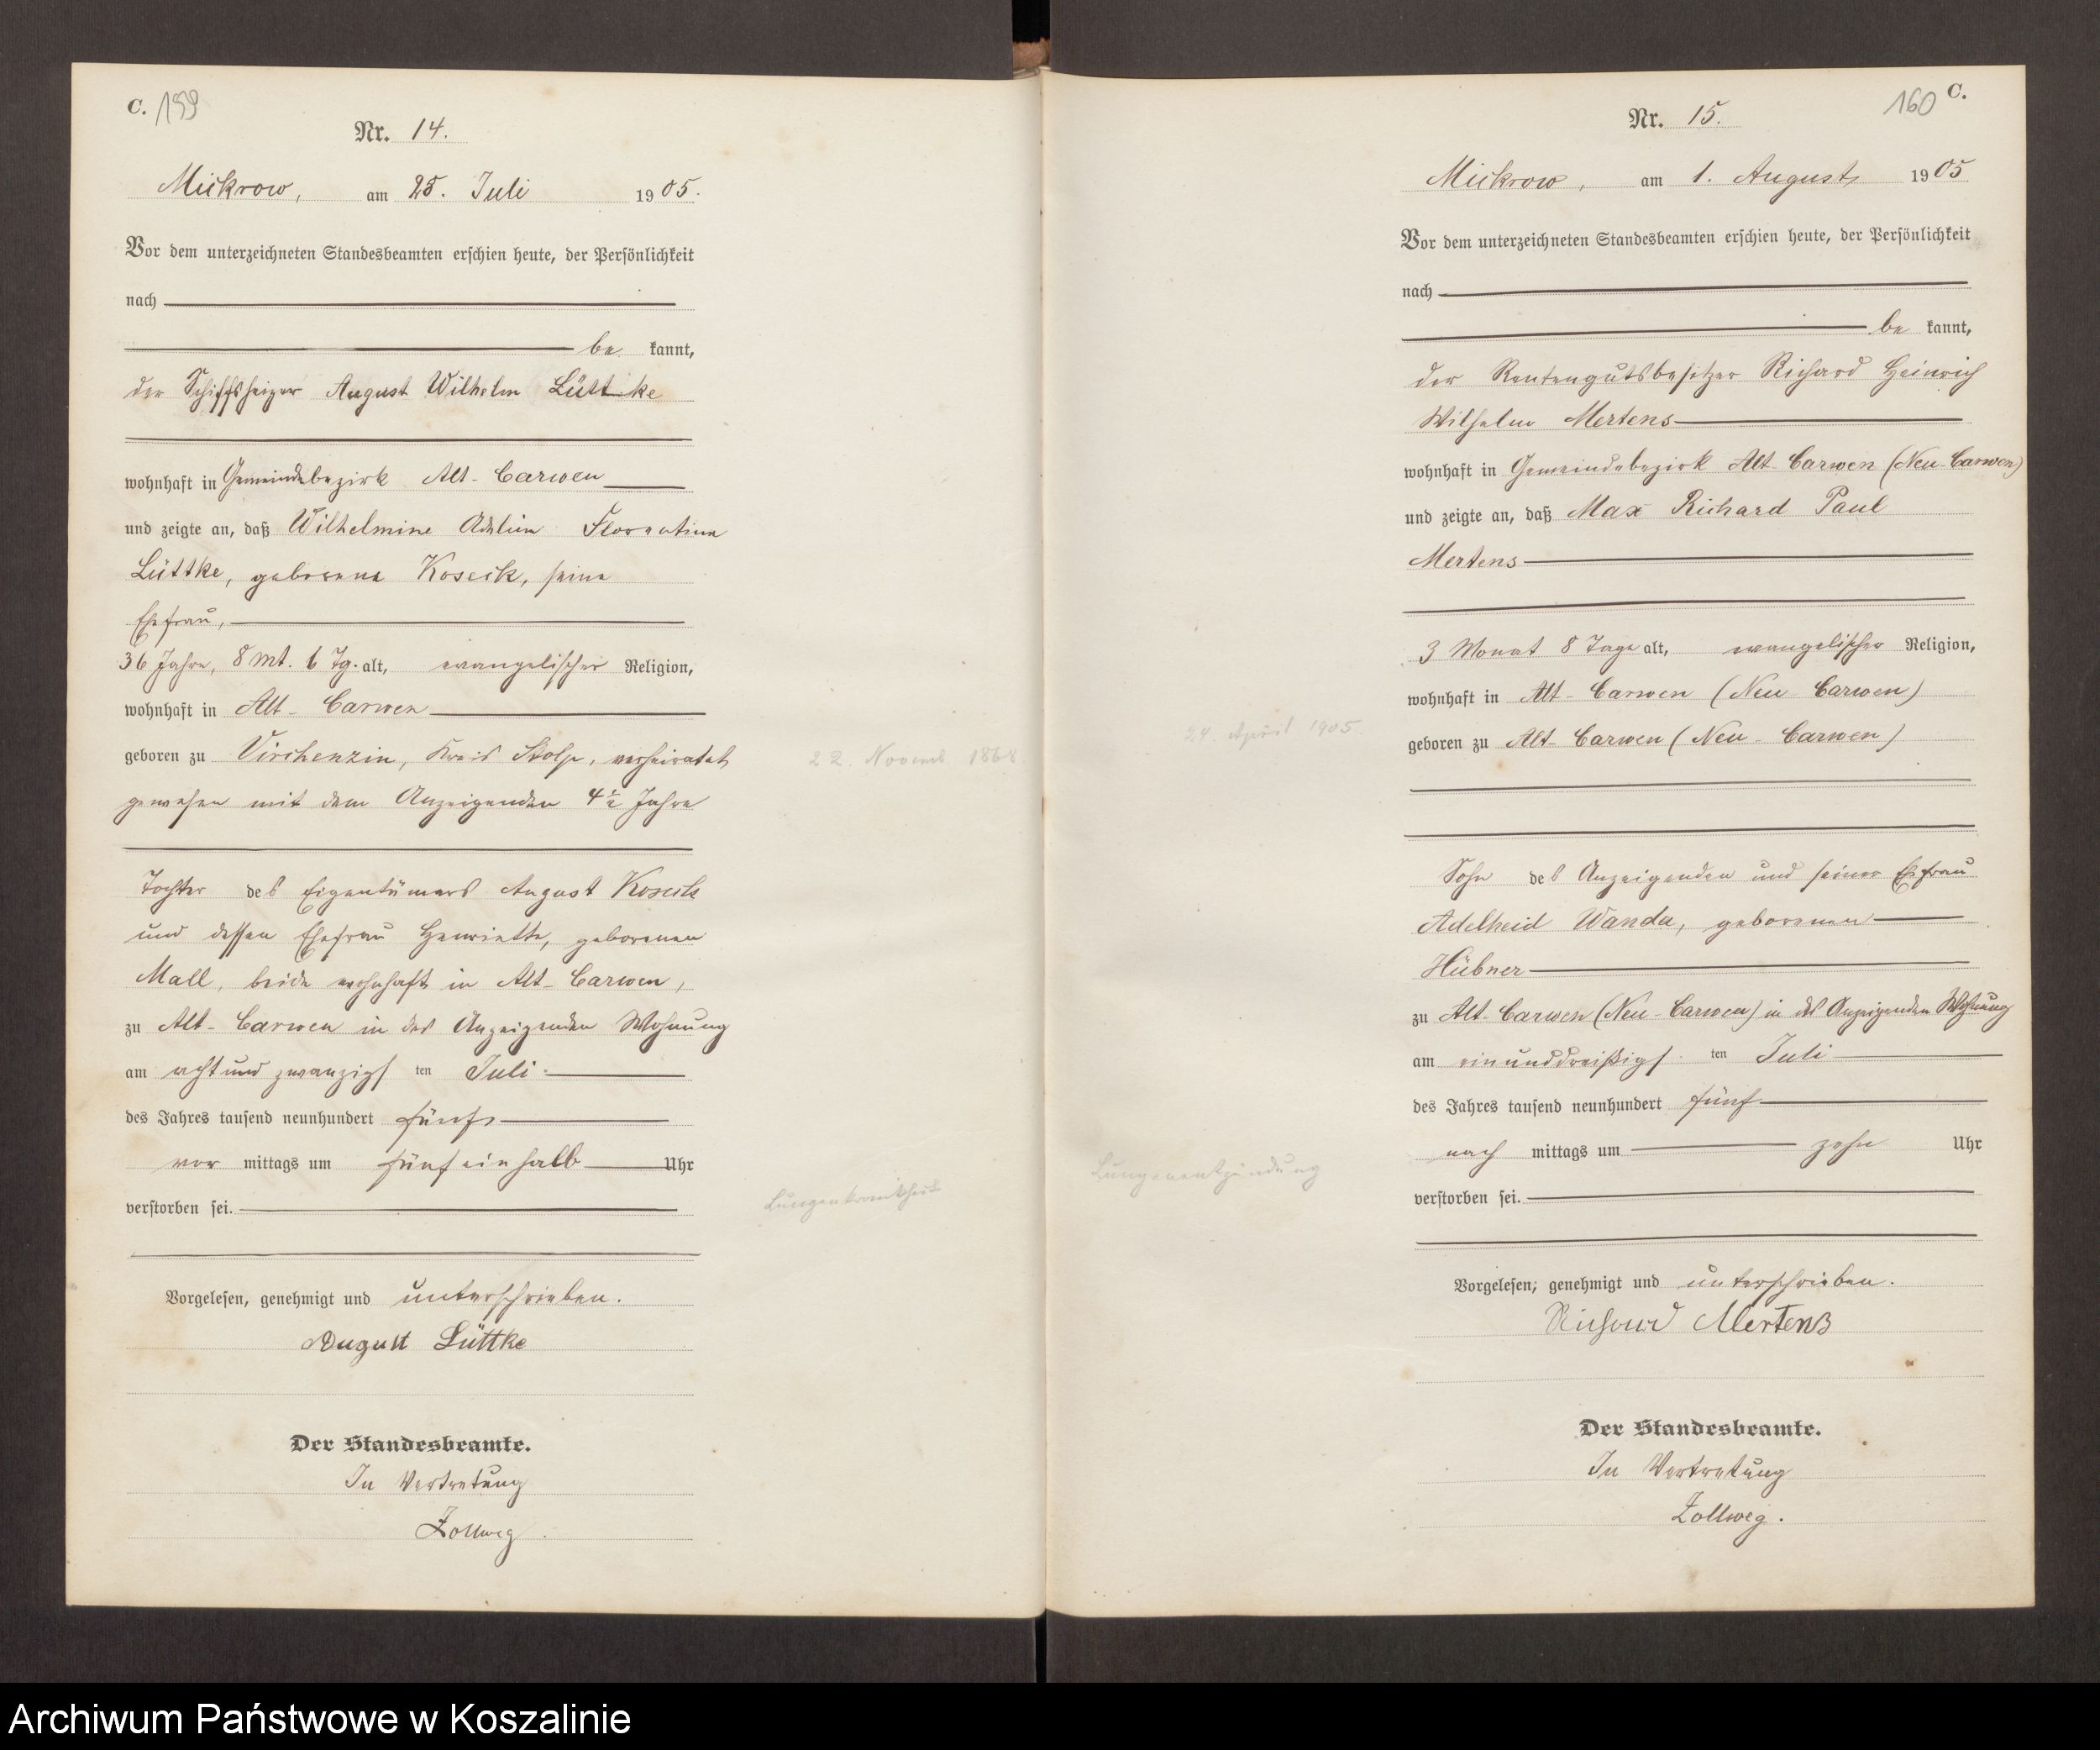 C. 159
Nr. 14.
Mickrow, am 28. Juli 1905.
Vor dem unterzeichneten Standesbeamten erschien heute, der Persönlichkeit
nach
be kannt,
der Schiffsheizer August Wilhelm Lüttke
wohnhaft in Gemeindebezirk Alt-Carwen
und zeigte an, daß Wilhelmine Adeline Florentine
Lüttke, geborene Koseck, seine
Ehefrau,
36 Jahre, 8 Mt. 6 Tg. alt, evangelischer Religion,
wohnhaft in Alt-Carwen
geboren zu Virchenzin, Kreis Stolp, verheiratet
22. Novemb 1868
gewesen mit dem Anzeigenden 4½ Jahre
Tochter des Eigentümers August Koseck
und dessen Ehefrau Henriette, geborenen
Mall, beide wohnhaft in Alt-Carwen,
zu Alt-Carwen in des Anzeigenden Wohnung
am achtundzwanzigsten Juli
des Jahres tausend neunhundert fünf
vor mittags um fünfeinhalb Uhr
verstorben sei.
Lungenkrankheit
Vorgelesen, genehmigt und unterschrieben.
August Lüttke
Der Standesbeamte.
In Vertretung
Zollweg.
160 C.
Nr. 15.
Mickrow, am 1. August 1905
Vor dem unterzeichneten Standesbeamten erschien heute, der Persönlichkeit
nach
be kannt,
der Rentengutsbesitzer Richard Heinrich
Wilhelm Mertens
wohnhaft in Gemeindebezirk Alt-Carwen (Neu-Carwen)
und zeigte an, daß Max Richard Paul
Mertens
3 Monat 8 Tage alt, evangelischer Religion,
wohnhaft in Alt-Carwen (Neu-Carwen)
24. April 1905.
geboren zu Alt-Carwen (Neu-Carwen)
Sohn des Anzeigenden und seiner Ehefrau
Adelheid Wanda, geborenen
Hübner
zu Alt-Carwen (Neu-Carwen) in des Anzeigenden Wohnung
am einunddreißigsten Juli
des Jahres tausend neunhundert fünf
nach mittags um zehn Uhr
Lungenentzündung
verstorben sei.
Vorgelesen, genehmigt und unterschrieben.
Richard Mertens
Der Standesbeamte.
In Vertretung
Zollweg.
Archiwum Państwowe w Koszalinie